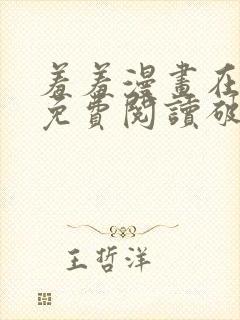 羞羞漫畫在
免費閱讀破
王哲洋